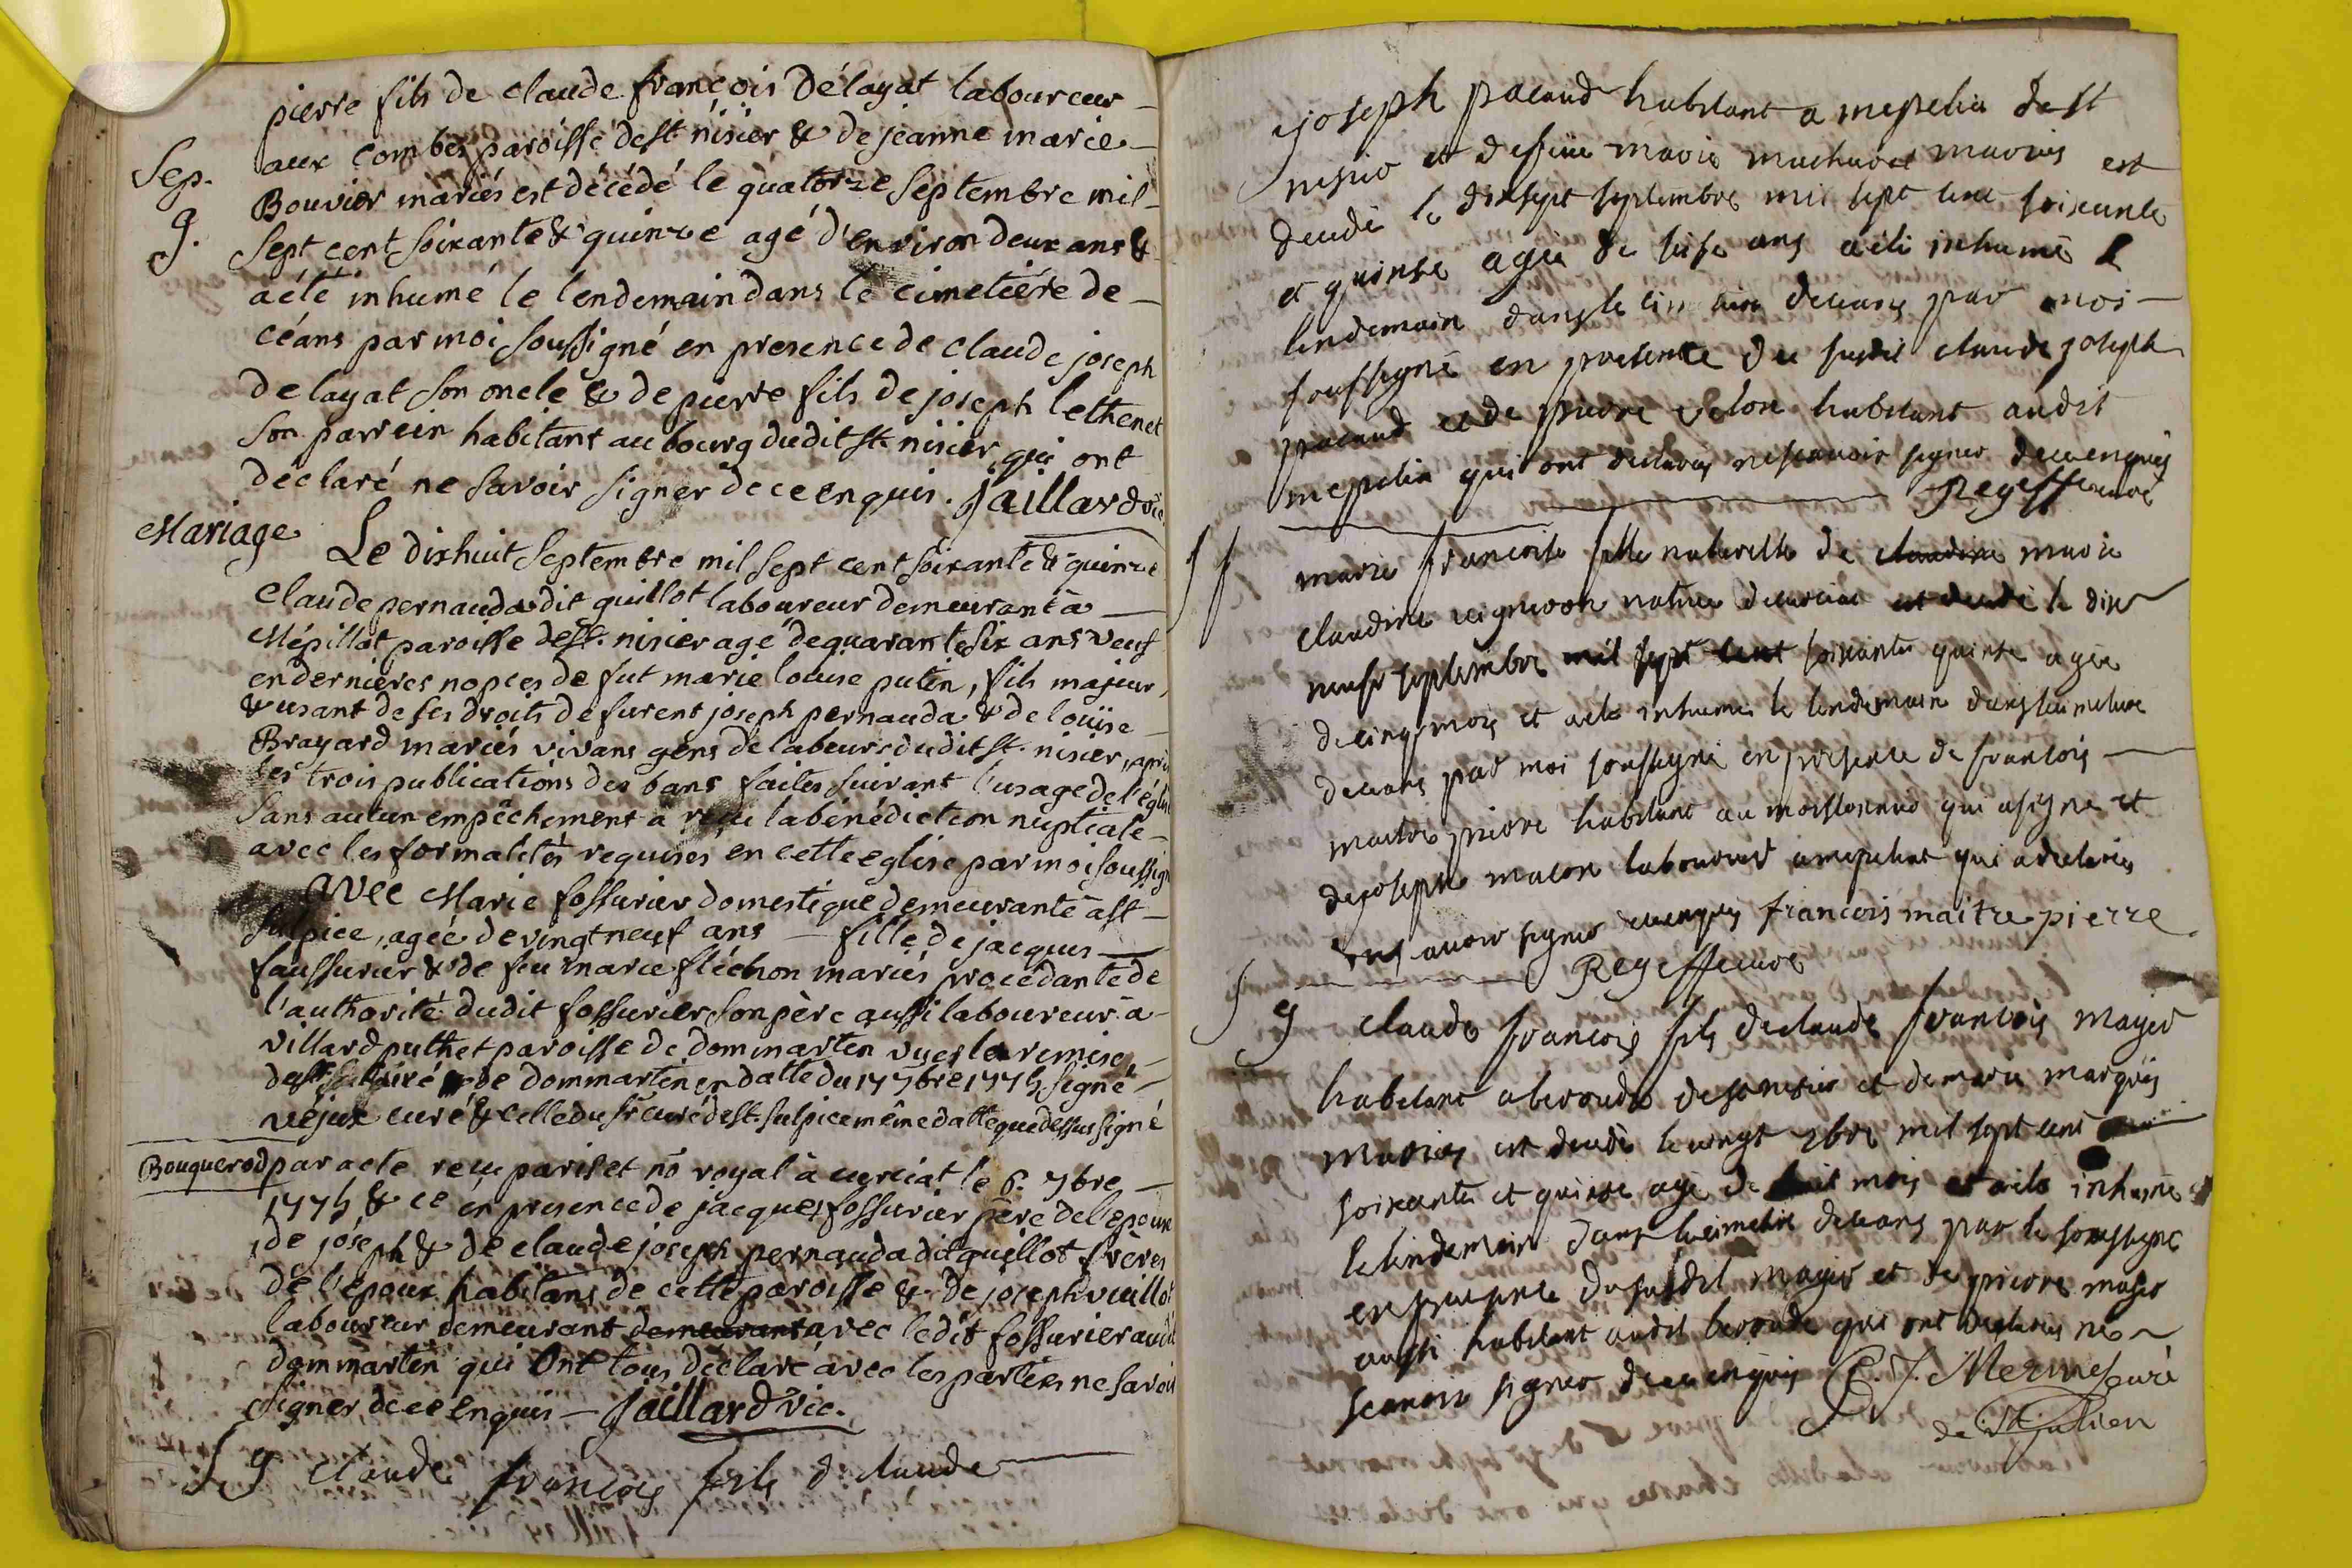 pierre fils de claude françois Délayat laboureur
Sep. aux combes paroisse de st nisier & de jeanne marie
g. Bouvier mariés est décédé le quatorze Septembre mil
Sept cent soixante & quinze agé d'environ deux ans &
a été inhumé le lendemain dans le cimetiére de
céans par moi soussigné en presence de claude joseph
delayat son oncle & de pierre fils de joseph lethenet
son parrein habitans au bourg dudit st nisier qui ont
déclaré ne savoir signer de ce enquis. Jaillard vic.
Mariage Le dixhuit Septembre mil sept cent soixante & quinze
Claude pernauda dit guillot laboureur demeurant à
Mépillat paroisse de st. nisier agé de quarante six ans veuf
en dernières nopces de fut marie louise putin, fils majeur,
& usant de ses droits de furent joseph pernauda & de louïse
Brayard mariés vivans gens de labeurs dudit st. nisier, après
les trois publications des bans faites suivant l'usage de l'églis
Sans aucun empêchement a reçu la bénédiction nuptiale
avec les formalités requises en cette eglise par moi soussign
avec Marie fossurier domestique demeurante à st
Sulpice, agée de vingt neuf ans fille de jacques
faussurier & de feu marie fléchon mariés procédante de
l'authorité dudit fossurier son père aussi laboureur à
villard puthet paroisse de dommarten vues la remise
de sr curé de dommarten en datte du 17 7bre 1775 signé
véjux curé & celle du sr curé de st. sulpice même datte que dessus signé
Bouquerod par acte reçu pariset nō royal à curciat le 6 7bre
1775 & ce en presence de jacques fossurier père de l'epouse
de joseph & de claude joseph pernauda dit guillot frères
de l'époux habitans de cette paroisse & de joseph vuillot
laboureur demeurant demeurant avec ledit fossurier audit
dommarten qui Ont tous déclaré avec les parties ne savoir
signer de ce enquis Jaillard vic.
S g claude françois fils d claude
joseph pacaud habitant a mepelia de st
nesier et de feüe marie maries est
decede le dixsept septembre mil sept cent soixante
et quinse agée de ans a eté inhumé le
lendemain dans le deceans par moi
soussigné en presence du susdit claude joseph
pacaud et de pierre velon habitant audit
mepelia qui ont declarés ne scauoir signer de ce enquis
Regeffe curé
S f marie francoise fille naturelle de claudine marie
claudine natiue de curciat est decede le dix
neuf septembre mil sept cent soixante quinse agée
de cinq mois et a ete inhumée le lendemain dans le cimetiere
deceans par moi soussigné en presence de francois
maitre pierre habitant au moissonnier qui a signe et
de joseph macon laboureur a mepeliat qui a declaré
ne scauoir signer de ce enquis francois maitre pierre
Regeffe curé
S g claude francois fils de claude francois mayer
habitant a beroude de st nesier et de marie marquis
maries est decede le vingt 7bre mil sept cent
soixante et quinse age de huit mois et a ete inhumé
le lendemain dans le cimetiere deceans par le soussigne
en presence du susdit mayer et de pierre
aussi habitant audit beroude qui ont declarés ne
scauoir signer de ce enquis C. J. Mermet curé
de St Julien